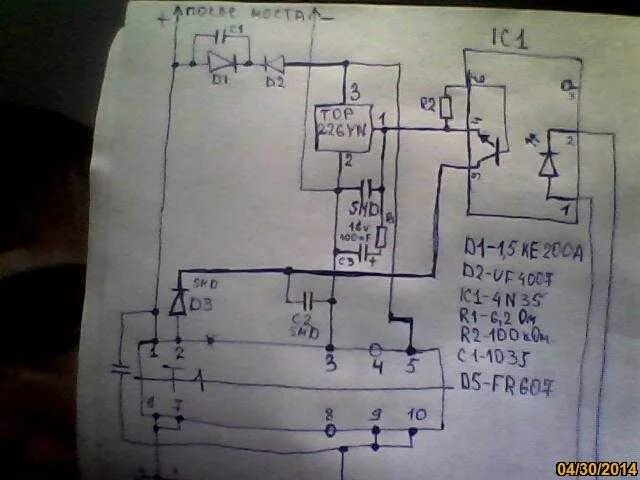 + ПОСЛЕ МОСТА -
C1
IC1
D1
D2
3
R2
6
TOP
226YN
1
4
2
2
5
SMD
1
100mF
C3 +
SMD
D3
C2
SMD
1 2 3 4 5
D1-1,5KE200A
D2-UF4007
IC1-4N35
R1-6,2 Ом
R2-100кОм
C1-1035
D5-FR607
6 7 8 9 10
04/30/2014